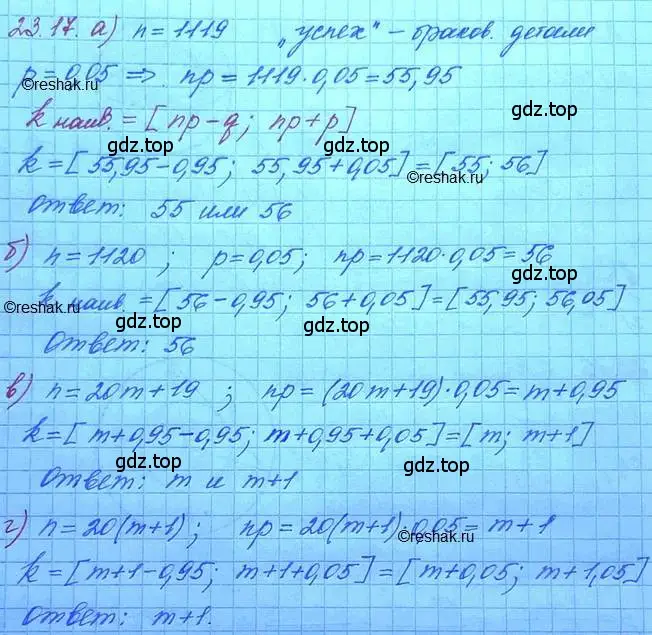 23.17. а) n = 1119 „успех" – браков. детали
p = 0,05 ⇒ np = 1119·0,05 = 55,95
©reshak.ru
k наив. = [np – q; np + p]
gdz.top gdz.top
k = [55,95 – 0,95; 55,95 + 0,05] = [55; 56]
©reshak.ru
Ответ: 55 или 56
б) n = 1120; p = 0,05; np = 1120·0,05 = 56
gdz.top
k наив. = [56 – 0,95; 56 + 0,05] = [55,95; 56,05]
©reshak.ru
gdz.top gdz.top
Ответ: 56
в) n = 20m + 19; np = (20m + 19)·0,05 = m + 0,95
k = [m + 0,95 – 0,95; m + 0,95 + 0,05] = [m; m + 1]
gdz.top gdz.top
Ответ: m и m + 1
г) n = 20(m + 1); np = 20(m + 1)·0,05 = m + 1
©reshak.ru
k = [m + 1 – 0,95; m + 1 + 0,05] = [m + 0,05; m + 1,05]
gdz.top gdz.top
Ответ: m + 1.